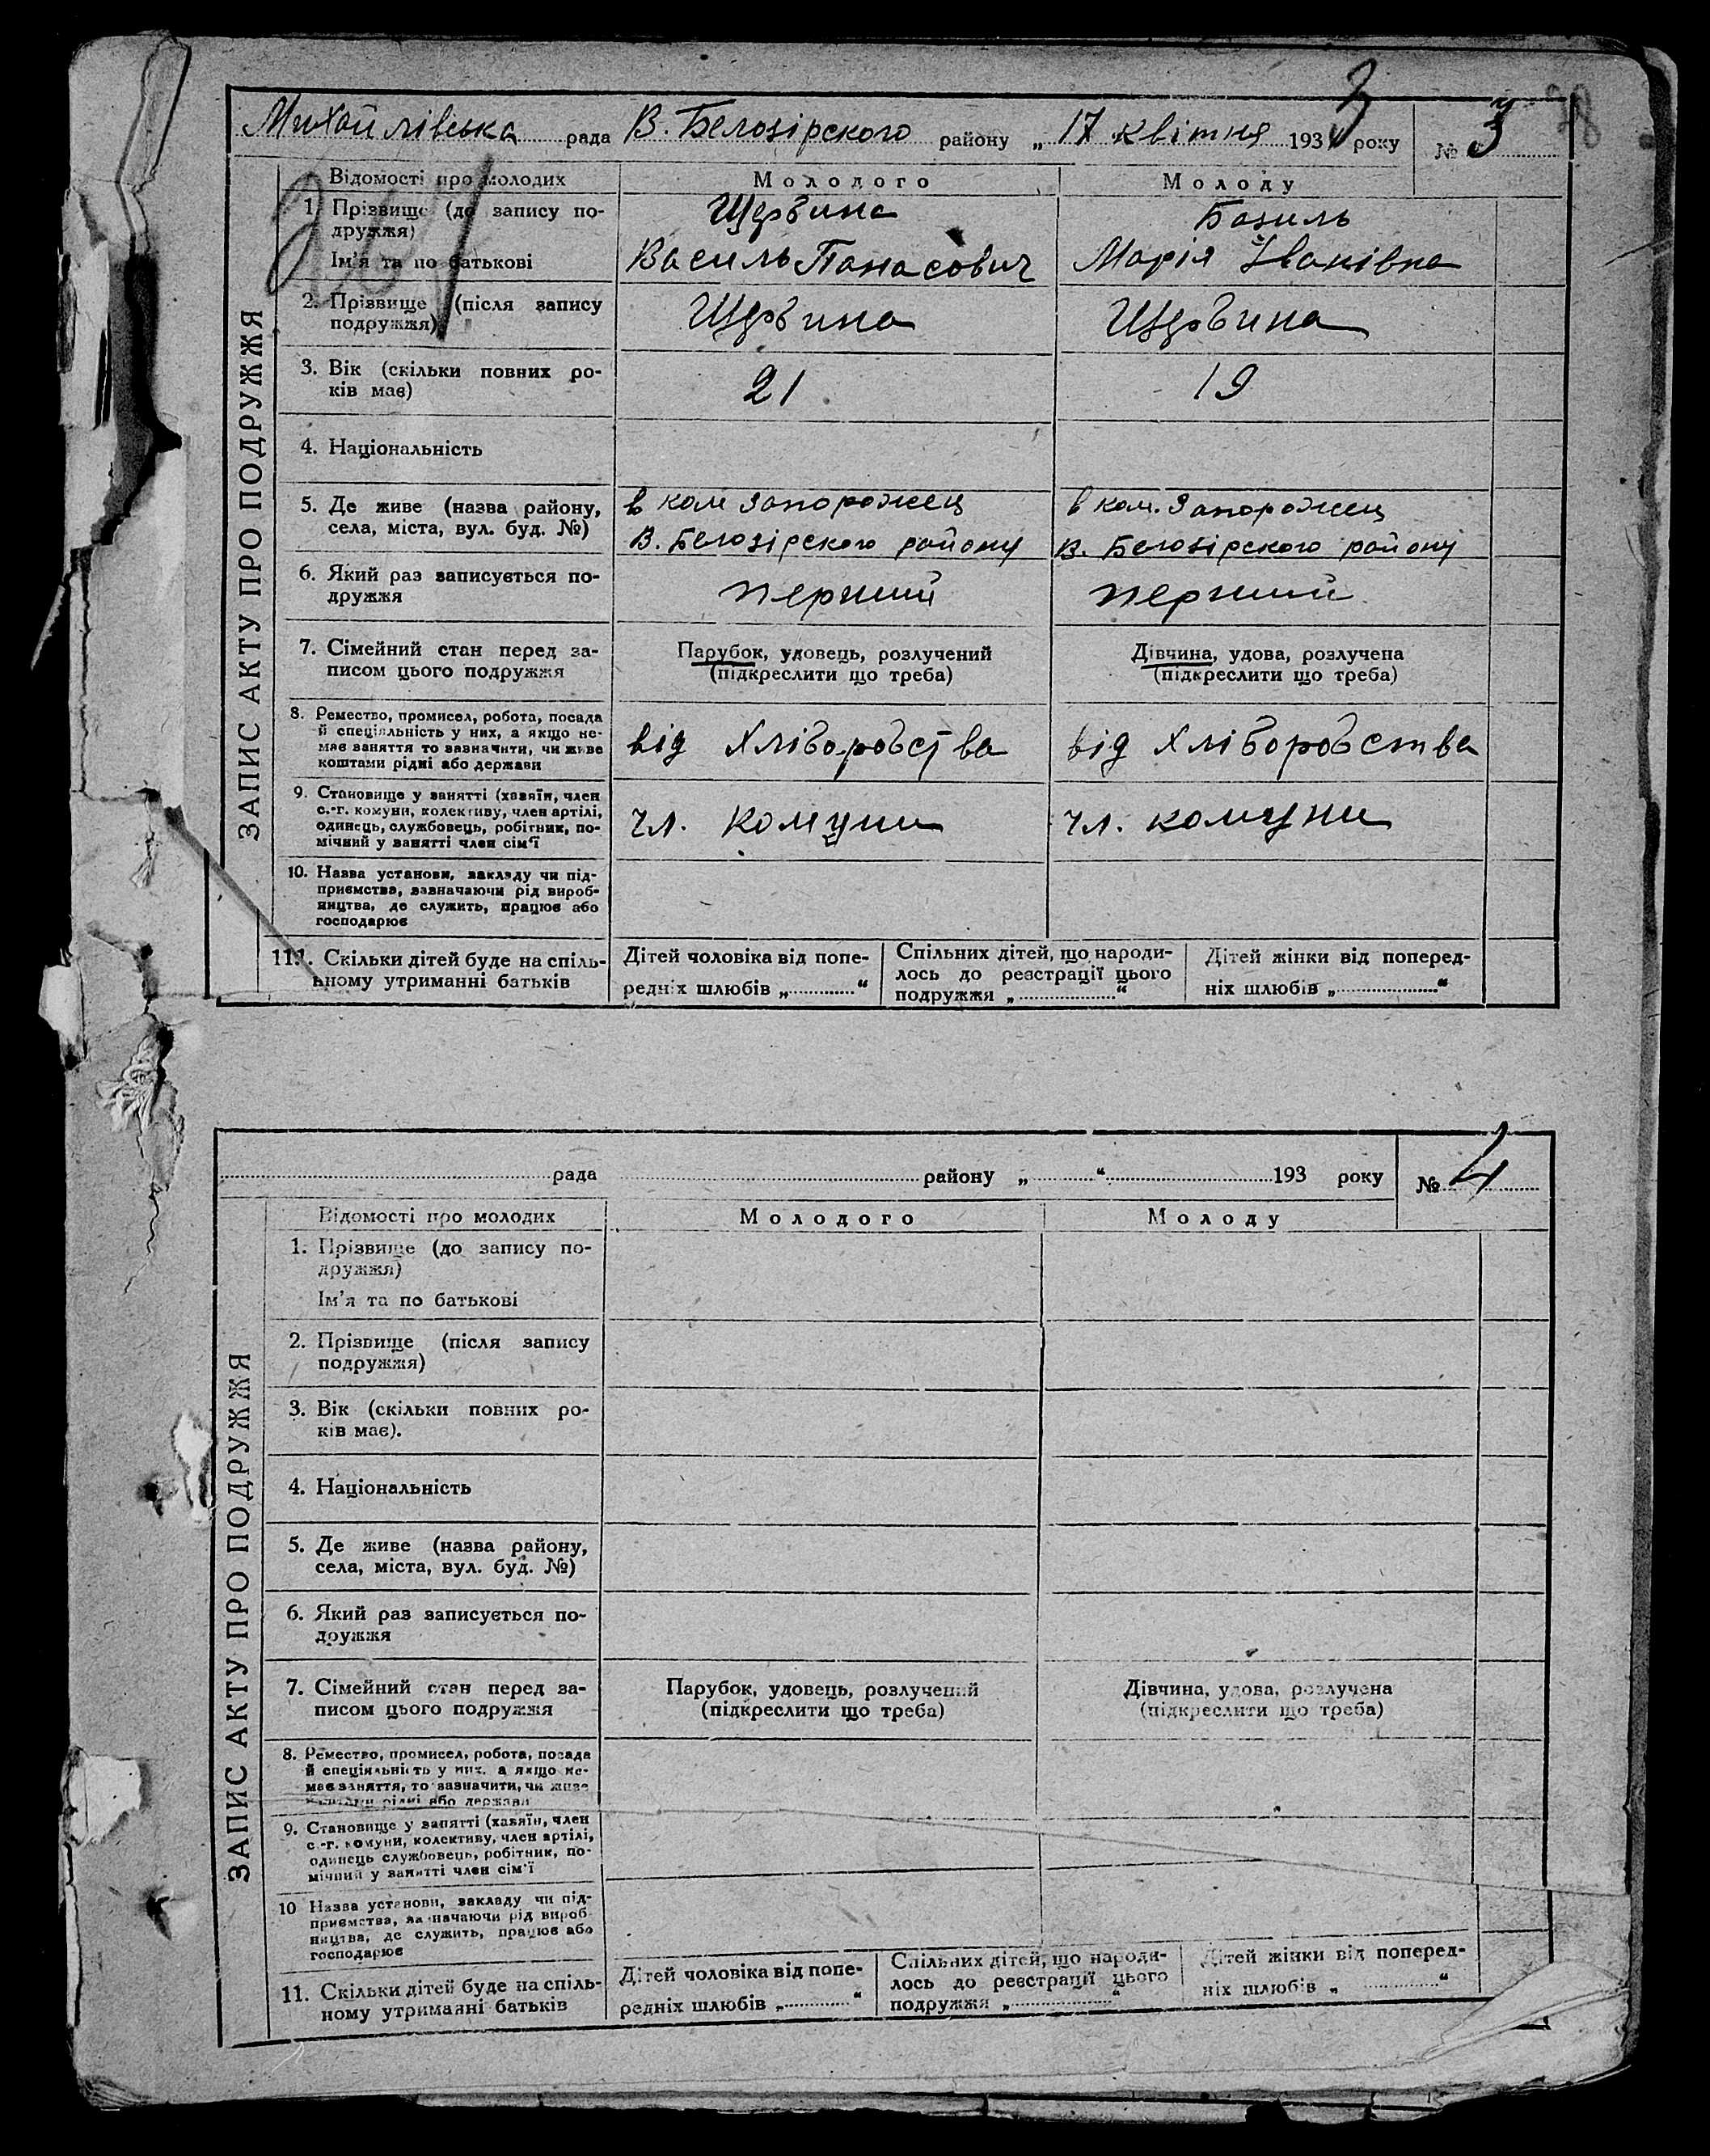 Михайлівська рада В. Белозірского району „ 17 квітня 193 3 року № 3
ЗАПИС АКТУ ПРО ПОДРУЖЖЯ
Відомості про молодих Молодого Молоду
1. Прізвище (до запису по-
дружжя) Щербина Базиль
Ім'я та по батькові Василь Панасович Марія Іванівна
2. Прізвище (після запису
подружжя) Щербина Щербина
3. Вік (скільки повних ро-
ків має) 21 19
4. Національність
5. Де живе (назва району,
села, міста, вул. буд. №)
в ком Запорожец
В. Белозірского району
в ком. Запорожец
В. Белозірского району
6. Який раз записується по-
дружжя перший перший
7. Сімейний стан перед за-
писом цього подружжя
Парубок, удовець, розлучений
(підкреслити що треба)
Дівчина, удова, розлучена
(підкреслити що треба)
8. Ремество, промисел, робота, посада
й спеціяльність у них, а якщо не-
має заняття то зазначити, чи живе
коштами рідні або держави
від хліборобства від хліборобства
9. Становище у занятті (хазяїн, член
с.-г. комуни, колективу, член артілі,
одинець, службовець, робітник, по-
мічний у занятті член сім'ї
чл. комуни чл. комуни
10. Назва установи, закладу чи під-
приємства, зазначаючи рід вироб-
ництва, де служить, працює або
господарює
11. Скільки дітей буде на спіль-
ному утриманні батьків
Дітей чоловіка від попе-
редніх шлюбів „ “
Спільних дітей, що народи-
лось до реєстрації цього
подружжя „ “
Дітей жінки від поперед-
ніх шлюбів „ “
рада району „ “ 193 року № 4
ЗАПИС АКТУ ПРО ПОДРУЖЖЯ
Відомості про молодих Молодого Молоду
1. Прізвище (до запису по-
дружжя)
Ім'я та по батькові
2. Прізвище (після запису
подружжя)
3. Вік (скільки повних ро-
ків має).
4. Національність
5. Де живе (назва району,
села, міста, вул. буд. №)
6. Який раз записується по-
дружжя
7. Сімейний стан перед за-
писом цього подружжя
Парубок, удовець, розлучений
(підкреслити що треба)
Дівчина, удова, розлучена
(підкреслити що треба)
8. Ремество, промисел, робота, посада
й спеціяльність у них, а якщо не-
має заняття, то зазначити, чи живе
коштами рідні або держави
9. Становище у занятті (хазяїн, член
с.-г. комуни, колективу, член артілі,
одинець службовець, робітник, по-
мічний у занятті член сім'ї
10 Назва установи, закладу чи під-
приємства, зазначаючи рід вироб-
ництва, де служить, працює або
господарює
11. Скільки дітей буде на спіль-
ному утриманні батьків
Дітей чоловіка від попе-
редніх шлюбів „ “
Спільних дітей, що народи-
лось до реєстрації цього
подружжя „ “
Дітей жінки від поперед-
ніх шлюбів „ “